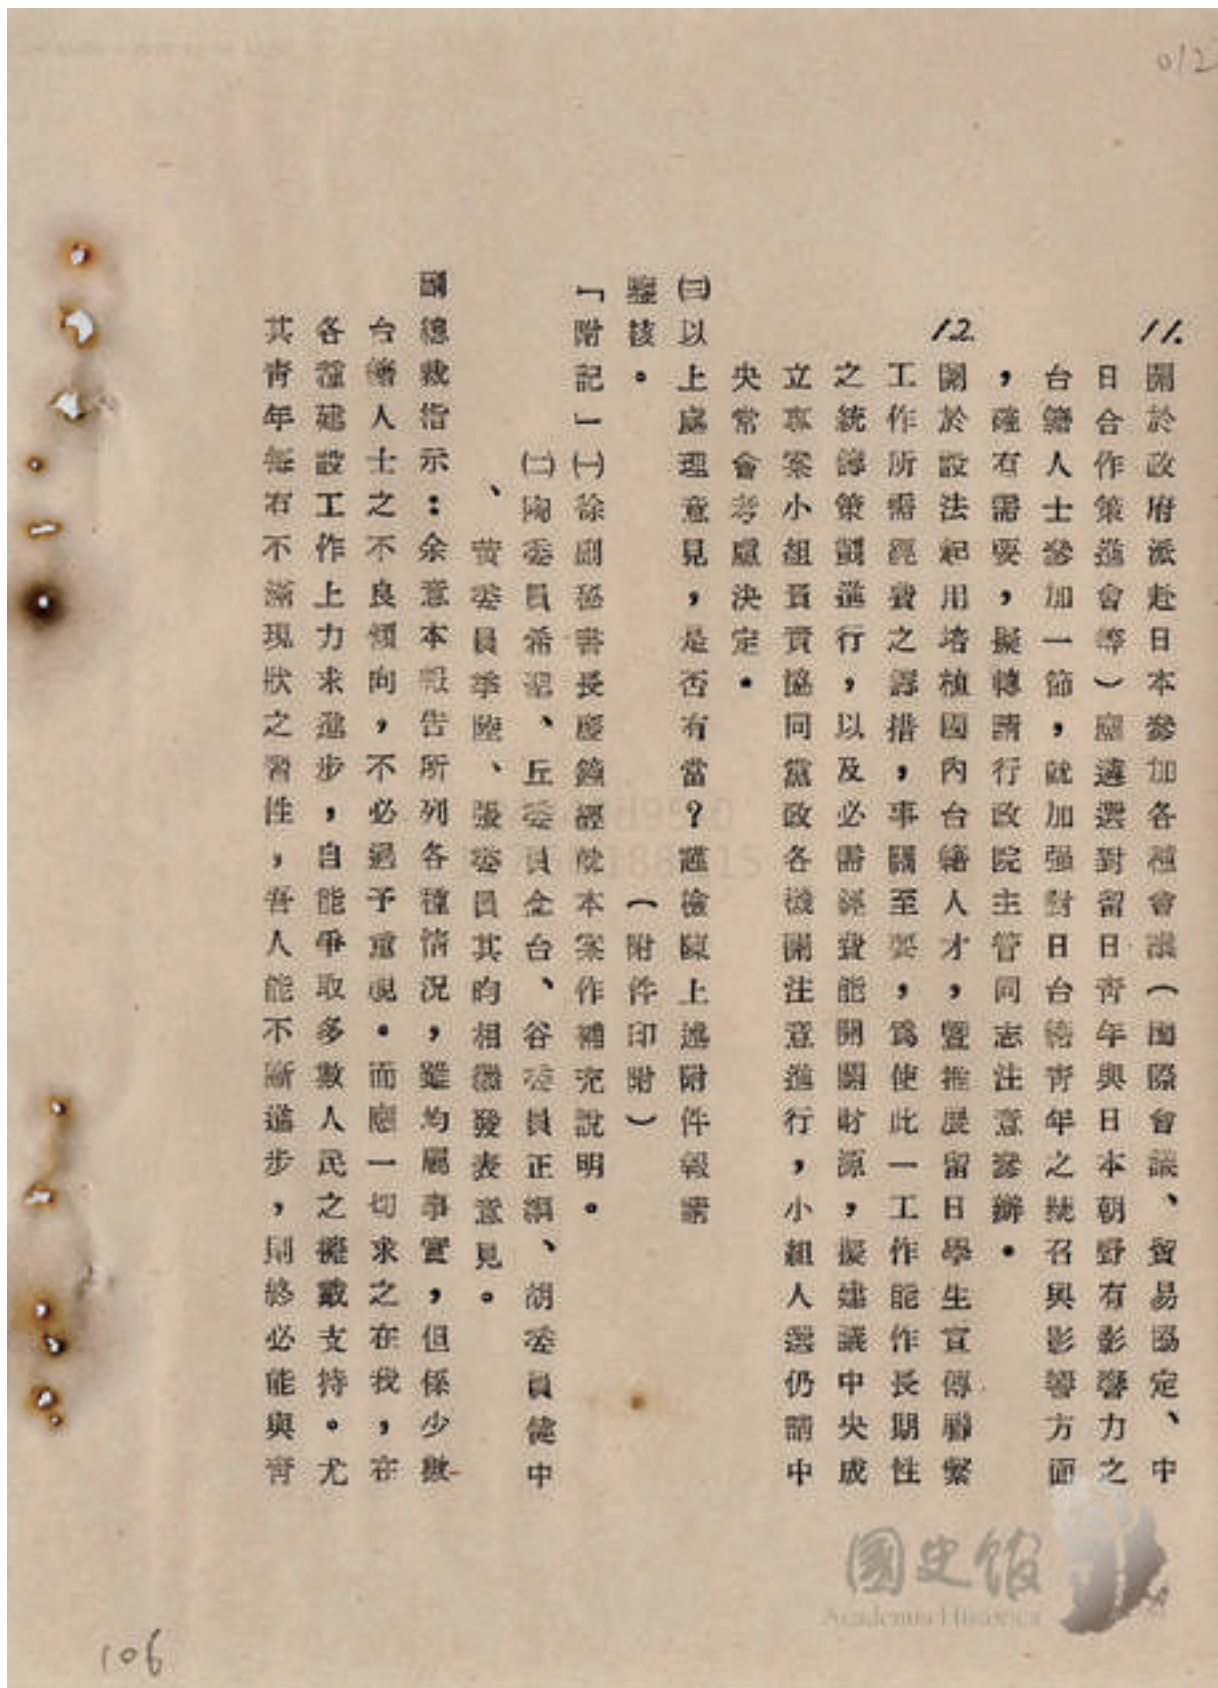 012
11.關於政府派赴日本參加各種會議（國際會議、貿易協定、中
日合作策進會等）應遴選對留日青年與日本朝野有影響力之
台籍人士參加一節，就加强對日台籍青年之號召與影響方面
，確有需要，擬轉請行政院主管同志注意參辦。
12.關於設法起用培植國內台籍人才，暨推展留日學生宣傳聯繫
工作所需經費之籌措，事關至要，爲使此一工作能作長期性
之統籌策劃進行，以及必需經費能開闢財源，擬建議中央成
立專案小組負責協同黨政各機關注意進行，小組人選仍請中
央常會考慮決定。
㈢以上處理意見，是否有當？謹檢陳上述附件報請
鑒核。（附件印附）
「附記」㈠徐副秘書長慶鐘經就本案作補充說明。
㈡陶委員希聖、丘委員念台、谷委員正綱、胡委員健中
、黃委員季陸、張委員其昀相繼發表意見。
副總裁指示：余意本報告所列各種情況，雖均屬事實，但係少數
台籍人士之不良傾向，不必過予重視。而應一切求之在我，在
各種建設工作上力求進步，自能爭取多數人民之擁戴支持。尤
其青年每有不滿現狀之習性，吾人能不斷進步，則終必能與青
106
國史館
Academia Historica